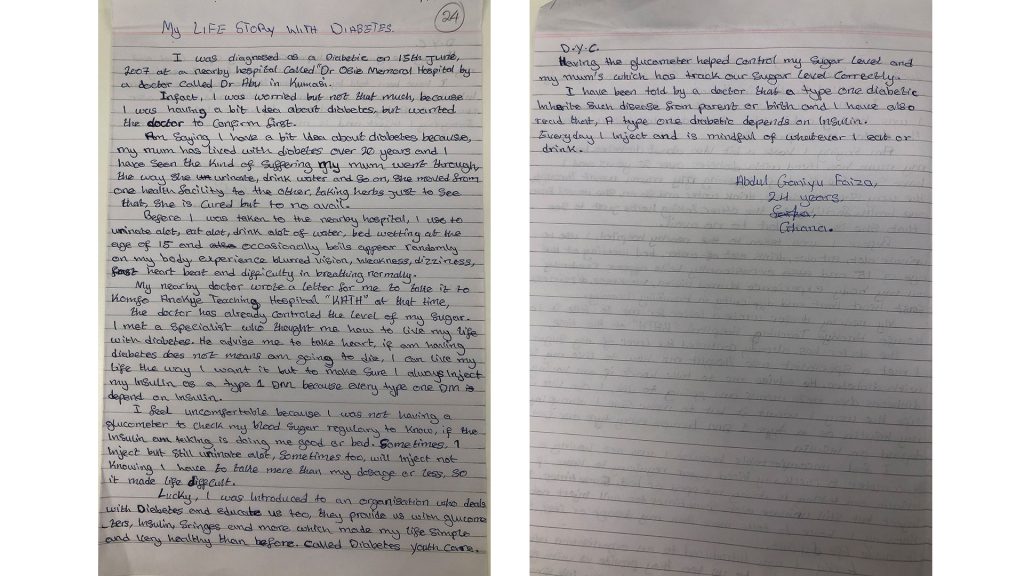 24
My LIFE STORY WITH DIABETES.
I was diagnosed as a Diabetic on 15th June,
2007 at a nearby hospital Called "Dr Osie Memoral Hospital by
a doctor called Dr Abu in Kumasi.
Infact, I was worried but not that much, because
I was having a bit Idea about diabetes, but wanted
the doctor to Confirm first.
Am Saying I have a bit Idea about diabetes because,
my mum has lived with diabetes over 20 years and I
have seen the kind of Suffering my mum went through,
the way she urinate, drink water and so on, She moved from
one health facility to the other, taking herbs just to See
that, She is Cured but to no avail.
Before I was taken to the nearby hospital, I use to
urinate alot, eat alot, drink alot of water, bed wetting at the
age of 15 and occasionally boils appear randomly
on my body experience blurred vision, weakness, dizziness,
fast heart beat and difficulty in breathing normally.
My nearby doctor wrote a letter for me to take it to
Komfo Anokye Teaching Hospital "KATH" at that time,
the doctor has already controled the level of my Sugar.
I met a Specialist who thought me how to live my life
with diabetes. He advise me to take heart, if am having
diabetes does not means am going to die, I can live my
life the way I want it but to make Sure I always Inject
my Insulin as a type 1 DM because every type one DM is
depend on Insulin.
I feel uncomfortable because I was not having a
glucometer to check my blood Sugar regulary to know, if the
Insulin am taking is doing me good or bad. Sometimes, I
Inject but Still urinate alot, Sometimes too, will Inject not
Knowing I have to take more than my dosage or less, So
it made life difficult.
Lucky, I was Introduced to an organisation who deals
with Diabetes and educate us too, they provide us with glucome
-ters, Insulin, Sringes and more which made my life Simple
and very healthy than before. Called Diabetes Youth Care.
D.Y.C.
Having the glucometer helped Control my Sugar level and
my mum's which has track our Sugar level Correctly.
I have been told by a doctor that a type one diabetic
Inherite Such disease from parent or birth and I have also
read that, A type one diabetic depends on Insulin.
Everyday I Inject and is mindful of whatever I eat or
drink.
Abdul Ganiyu Faiza,
24 years,
Ghana.